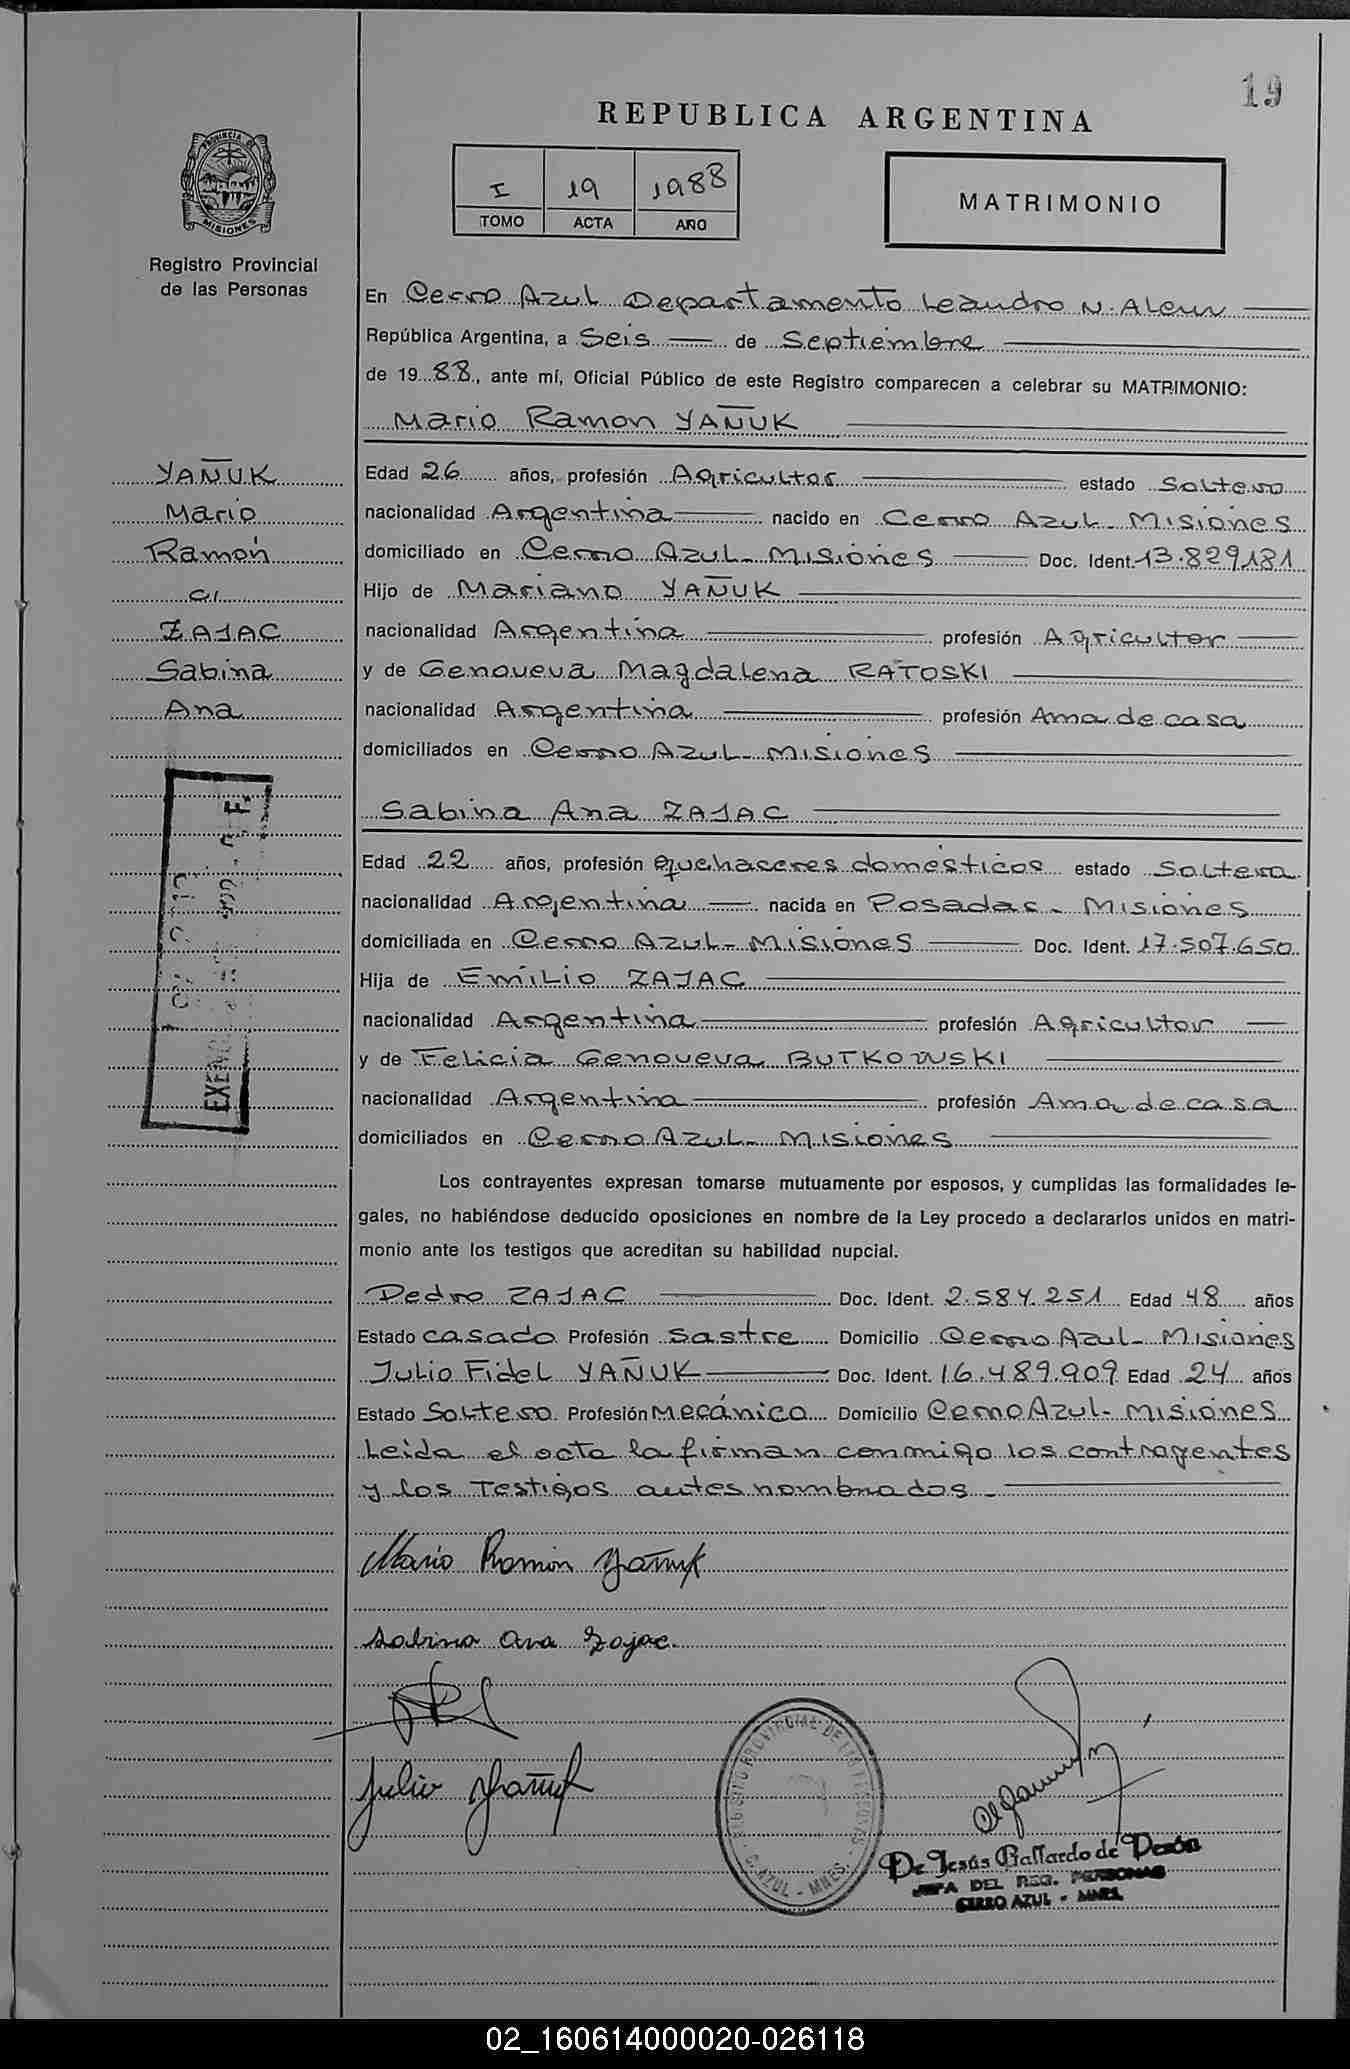 19
REPUBLICA ARGENTINA
PROVINCIA DE
MISIONES
Registro Provincial
de las Personas
I 19 1988
TOMO ACTA AÑO
MATRIMONIO
En Cerro Azul Departamento Leandro N. Alem
República Argentina, a Seis de Septiembre
de 1988, ante mí, Oficial Público de este Registro comparecen a celebrar su MATRIMONIO:
Mario Ramon YAÑUK
YAÑUK
Mario
Ramón
c/
ZAJAC
Sabina
Ana
Edad 26 años, profesión Agricultor estado Soltero
nacionalidad Argentina nacido en Cerro Azul - Misiones
domiciliado en Cerro Azul - Misiones Doc. Ident. 13.829.181
Hijo de Mariano YAÑUK
nacionalidad Argentina profesión Agricultor
y de Genoveva Magdalena RATOSKI
nacionalidad Argentina profesión Ama de casa
domiciliados en Cerro Azul - Misiones
Sabina Ana ZAJAC
Edad 22 años, profesión quehaceres domésticos estado Soltera
nacionalidad Argentina nacida en Posadas - Misiones
domiciliada en Cerro Azul - Misiones Doc. Ident. 17.507.650
Hija de Emilio ZAJAC
nacionalidad Argentina profesión Agricultor
y de Felicia Genoveva BUTKOWSKI
nacionalidad Argentina profesión Ama de casa
domiciliados en Cerro Azul - Misiones
Los contrayentes expresan tomarse mutuamente por esposos, y cumplidas las formalidades le-
gales, no habiéndose deducido oposiciones en nombre de la Ley procedo a declararlos unidos en matri-
monio ante los testigos que acreditan su habilidad nupcial.
Pedro ZAJAC Doc. Ident. 2.584.251 Edad 48 años
Estado casado Profesión Sastre Domicilio Cerro Azul - Misiones
Julio Fidel YAÑUK Doc. Ident. 16.489.909 Edad 24 años
Estado Soltero Profesión Mecánico Domicilio Cerro Azul - Misiones
Leida el acta la firman conmigo los contrayentes
y los Testigos antes nombrados -
Mario Ramón Yañuk
Sabina Ana Zajac.
Julio Yañuk
REGISTRO PROVINCIAL DE LAS PERSONAS
C. AZUL - MNES.
De Jesús Gallardo de Perón
JEFA DEL REG. PERSONAS
CERRO AZUL - MNES.
02_160614000020-026118